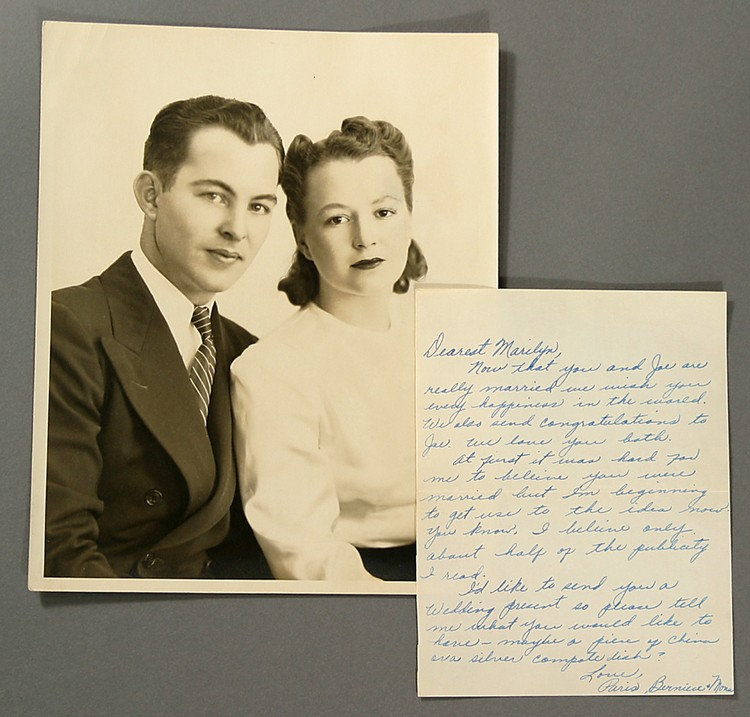 Dearest Marilyn,
Now that you and Joe are
really married we wish you
every happiness in the world.
We also send congratulations to
Joe. We love you both.
At first it was hard for
me to beleive you were
married but I'm beginning
to get use to the idea now.
You know, I beleive only
about half of the publicity
I read.
I'd like to send you a
Wedding present so please tell
me what you would like to
have - maybe a piece of China
or a silver compote dish?
Love,
Paris, Berniece & Mona